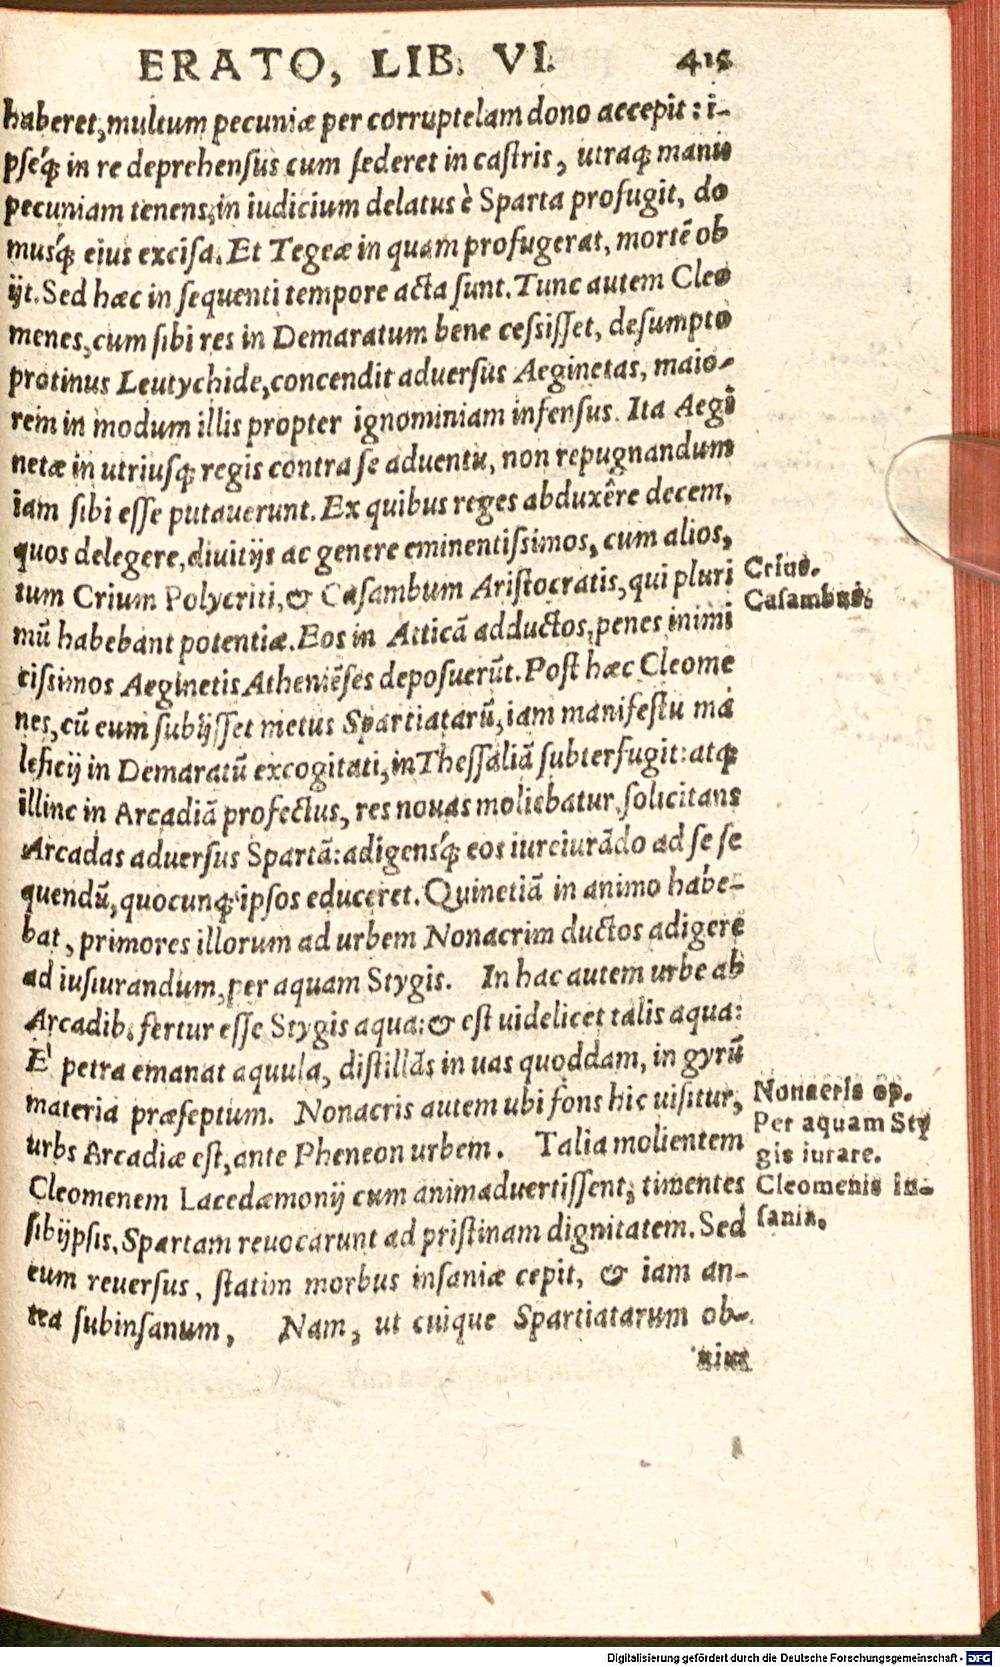 ERATO, LIB. VI. 415
haberet, multum pecuniæ per corruptelam dono accepit: i-
pseq́; in re deprehensus cum sederet in castris, utraq; manu
pecuniam tenens, in iudicium delatus è Sparta profugit, do
musq́; eius excisa. Et Tegeæ in quam profugerat, mortē ob
ijt. Sed hæc in sequenti tempore acta sunt. Tunc autem Cleo
menes, cum sibi res in Demaratum bene cessisset, desumpto
protinus Leutychide, concendit aduersus Aeginetas, maio-
rem in modum illis propter ignominiam infensus. Ita Aegi
netæ in utriusq; regis contra se aduentu, non repugnandum
iam sibi esse putauerunt. Ex quibus reges abduxêre decem,
quos delegere, diuitijs ac genere eminentissimos, cum alios,
tum Crium Polycriti, & Casambum Aristocratis, qui pluri
mū habebant potentiæ. Eos in Atticā adductos, penes inimi
cissimos Aeginetis Atheniēses deposuerūt. Post hæc Cleome
nes, cū eum subijsset metus Spartiatarū, iam manifestu ma
leficij in Demaratū excogitati, in Thessaliā subterfugit: atq;
illinc in Arcadiā profectus, res nouas moliebatur, solicitans
Arcadas aduersus Spartā: adigensq́; eos iureiurādo ad se se
quendū, quocunq; ipsos educeret. Quinetiā in animo habe-
bat, primores illorum ad urbem Nonacrim ductos adigere
ad iusiurandum, per aquam Stygis. In hac autem urbe ab
Arcadib. fertur esse Stygis aqua: & est uidelicet talis aqua:
E' petra emanat aquula, distillās in uas quoddam, in gyrū
materia præseptum. Nonacris autem ubi fons hic uisitur,
urbs Arcadiæ est, ante Pheneon urbem. Talia molientem
Cleomenem Lacedæmonij cum animaduertissent, timentes
sibijpsis, Spartam reuocarunt ad pristinam dignitatem. Sed
eum reuersus, statim morbus insaniæ cepit, & iam an-
tea subinsanum, Nam, ut cuique Spartiatarum ob-
uius
Crius.
Casambus.
Nonacris op.
Per aquam Sty
gis iurare.
Cleomenis in-
sania.
Digitalisierung gefördert durch die Deutsche Forschungsgemeinschaft - DFG